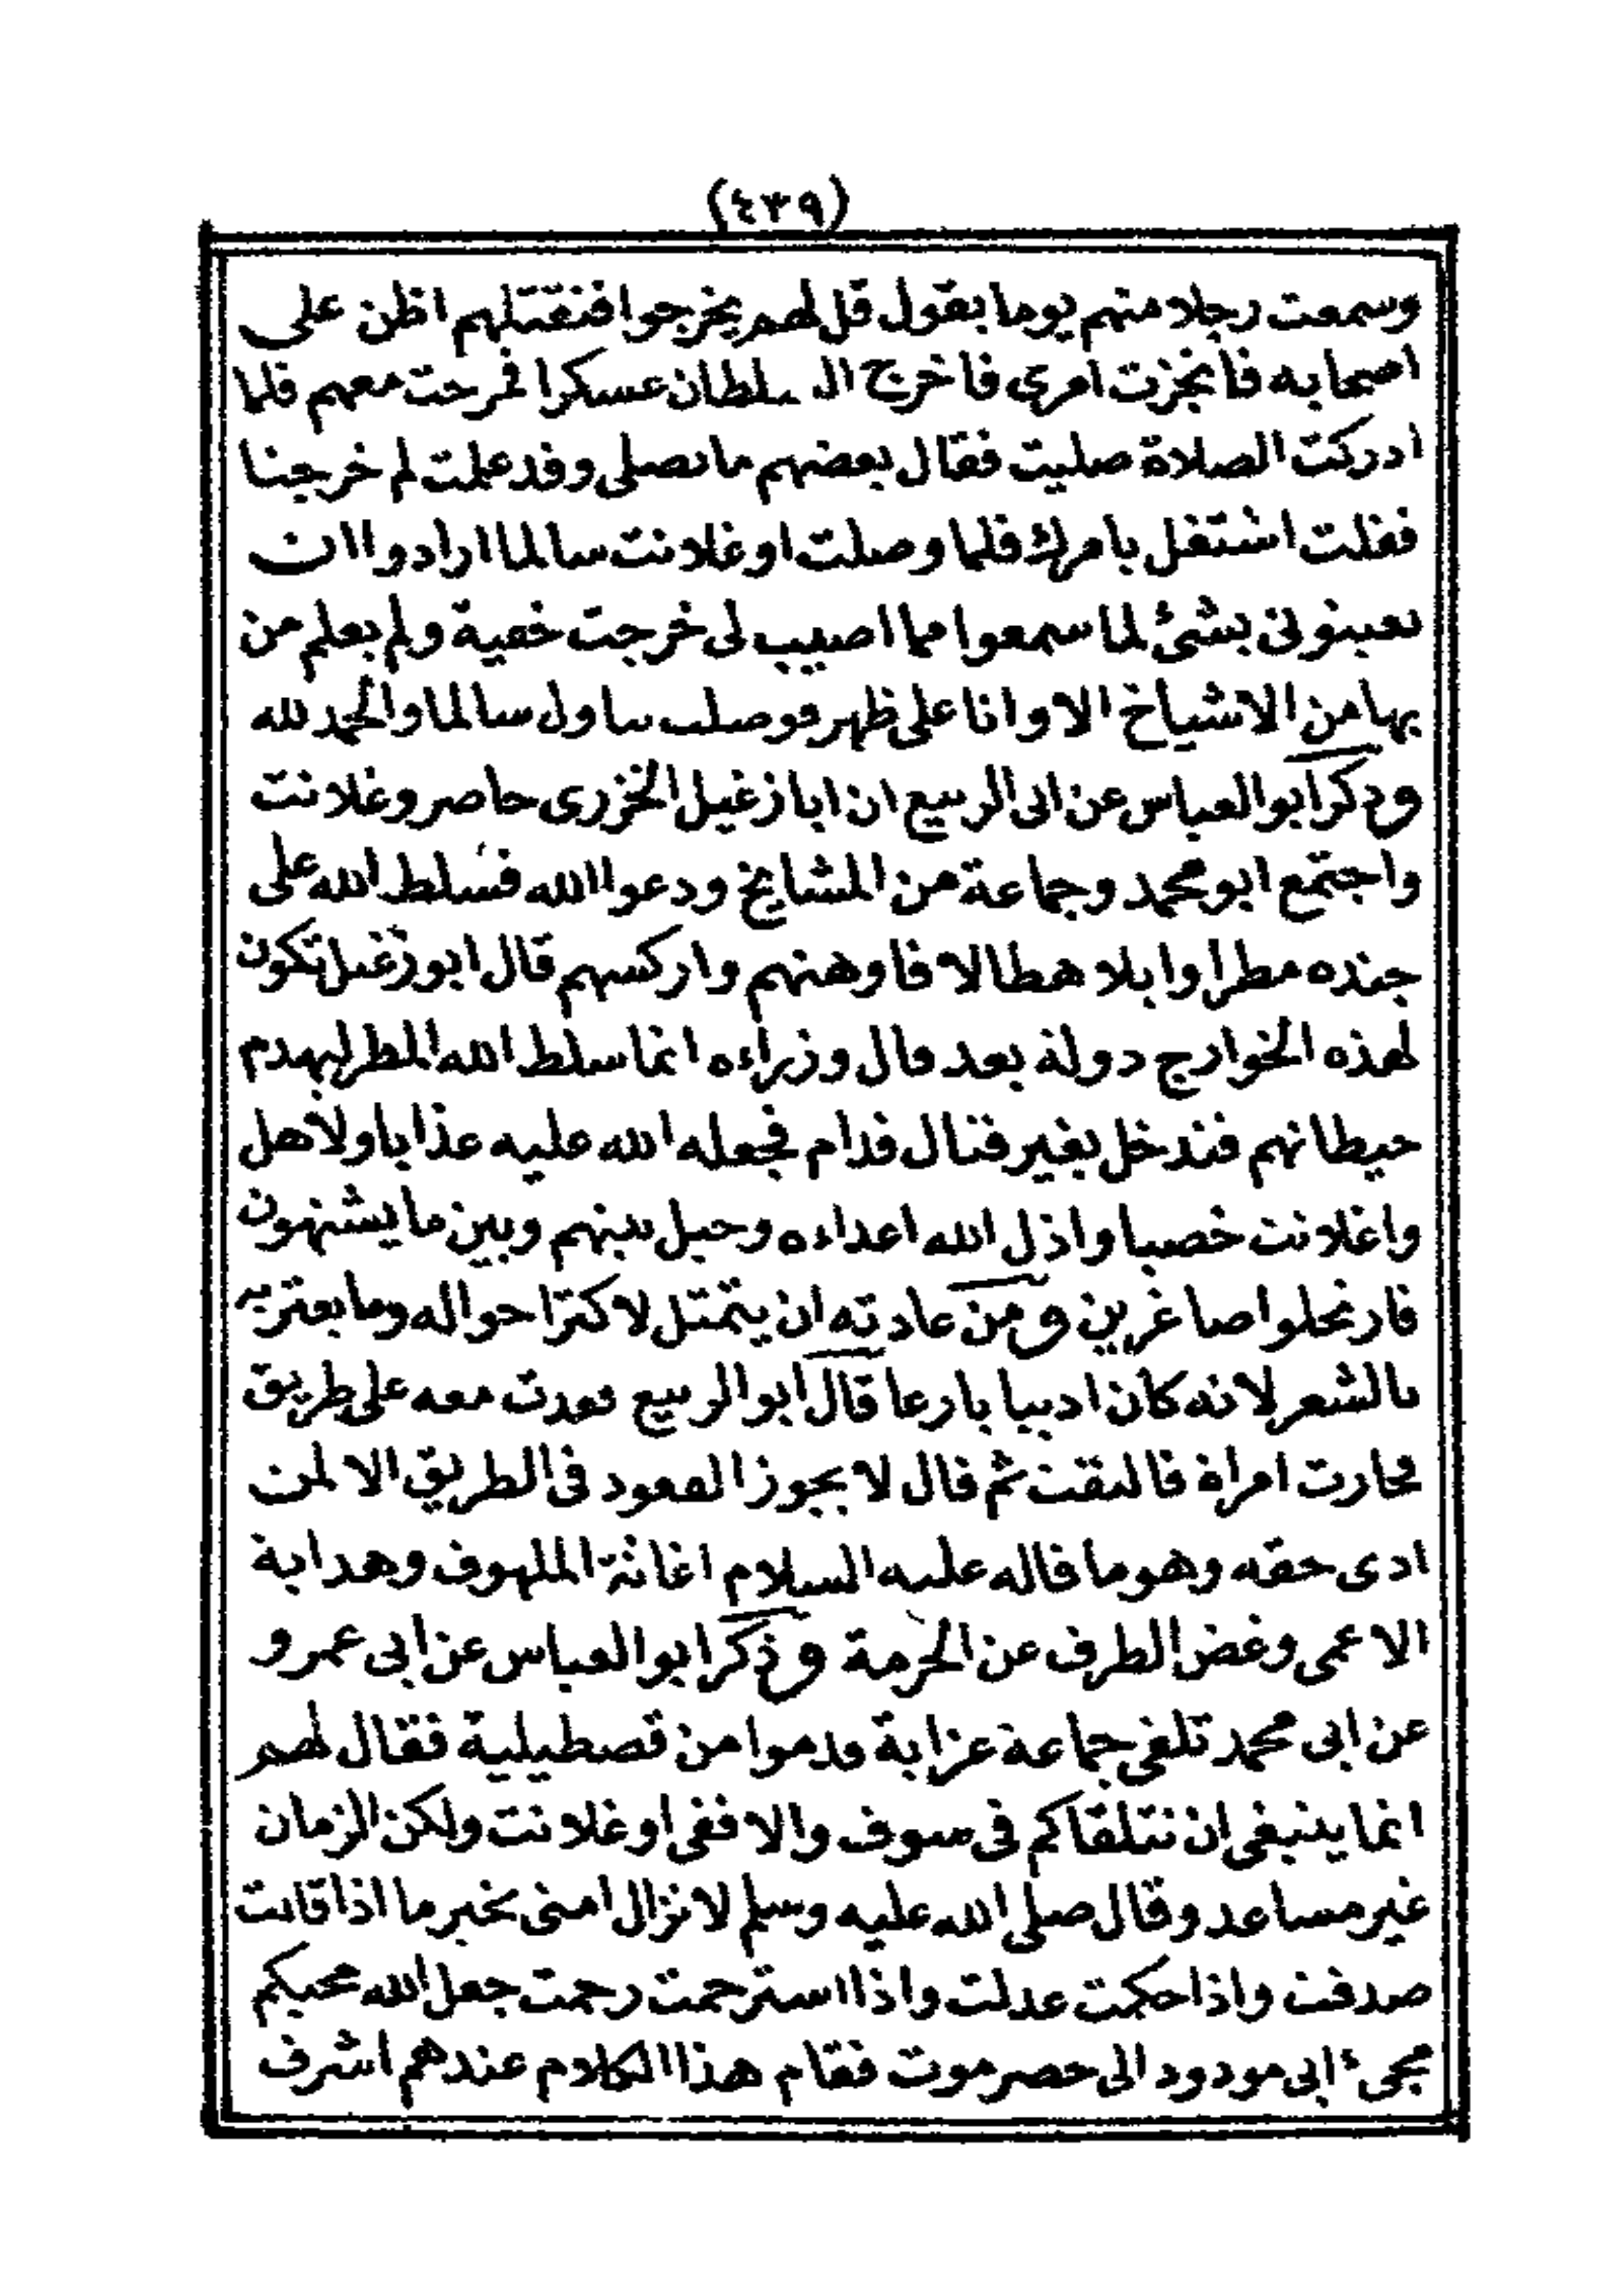 (٤٣٩)
وسمعت رجلا منهم يوما يقول قل لهم يخرجوا فنقتلهم اظن على
اصحابه فانجزت امرى فاخرج السلطان عسكرا فخرجت معهم فلما
ادركت الصلاة صليت فقال بعضهم ما تصلى وقد علمت لم خرجنا
فقلت اشتغل بامرك فلما وصلت اوغلانت سالما ارادوا ان
يعينونى بشئ لما سمعوا مما اصيب لى خرجت خفية ولم يعلم من
بها من الاشياخ الا وانا على ظهر فوصلت ساول سالما والحمد لله
وذكر ابو العباس عن ابى الربيع ان ابا زغيل الخزرى حاصر وغلانت
واجتمع ابو محمد وجماعة من المشايخ ودعوا الله فسلط الله على
جنده مطرا وابلا هطالا فاوهنهم واركسهم قال ابو زغيل تكون
لهذه الخوارج دولة بعد قال وزراءه انما سلط الله المطر ليهدم
حيطانهم فندخل بغير قتال فدام فجعله الله عليه عذابا ولاهل
واغلانت خصبا واذل الله اعداءه وحيل بينهم وبين ما يشتهون
فارتحلوا صاغرين ومن عادته ان يتمثل لاكثر احواله وما يعتريه
بالشعر لانه كان اديبا بارعا قال ابو الربيع قعدت معه على طريق
فجازت امراة فالتفت ثم قال لا يجوز القعود فى الطريق الا لمن
ادى حقه وهو ما قاله عليه السلام اغاثة الملهوف وهداية
الاعمى وغض الطرف عن الحرمة وذكر ابو العباس عن ابى عمرو
عن ابى محمد تلقى جماعة عزابة قدموا من قصطيلية فقال لهم
انما ينبغى ان نتلقاكم فى سوف والا ففى اوغلانت ولكن الزمان
غير مساعد وقال صلى الله عليه وسلم لا تزال امتى بخير ما اذا قالت
صدقت واذا حكمت عدلت واذا استرحمت رحمت جعل الله مجيكم
مجىء ابى مودود الى حضرموت فقام هذا الكلام عندهم اشرف